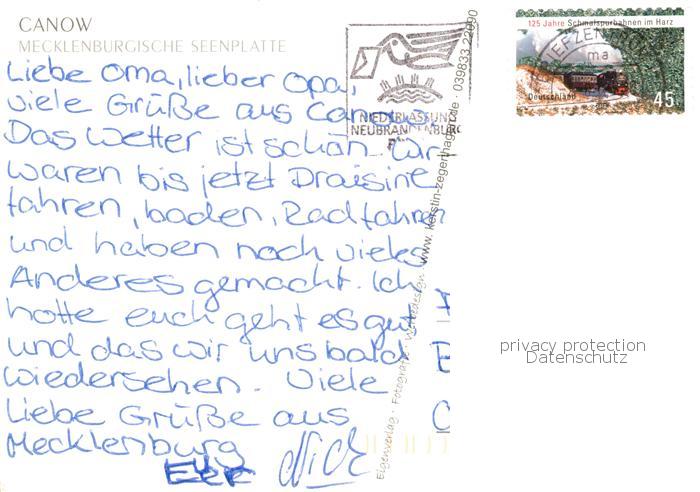 CANOW
MECKLENBURGISCHE SEENPLATTE
Liebe Oma, lieber Opa,
viele Grüße aus Canow.
Das Wetter ist schön. Wir
waren bis jetzt Draisine
fahren, baden, Radfahren
und haben noch vieles
Anderes gemacht. Ich
hoffe euch geht es gut
und das wir uns bald
wiedersehen. Viele
Liebe Grüße aus
Mecklenburg
Nick
NIEDERLASSUNG
NEUBRANDENBURG
Eigenverlag · Fotografie · www.kerstin-zegenhagen.de · 039833 22090
125 Jahre Schmalspurbahnen im Harz
BRIEFZENTRUM
ma
Deutschland
45
privacy protection
Datenschutz